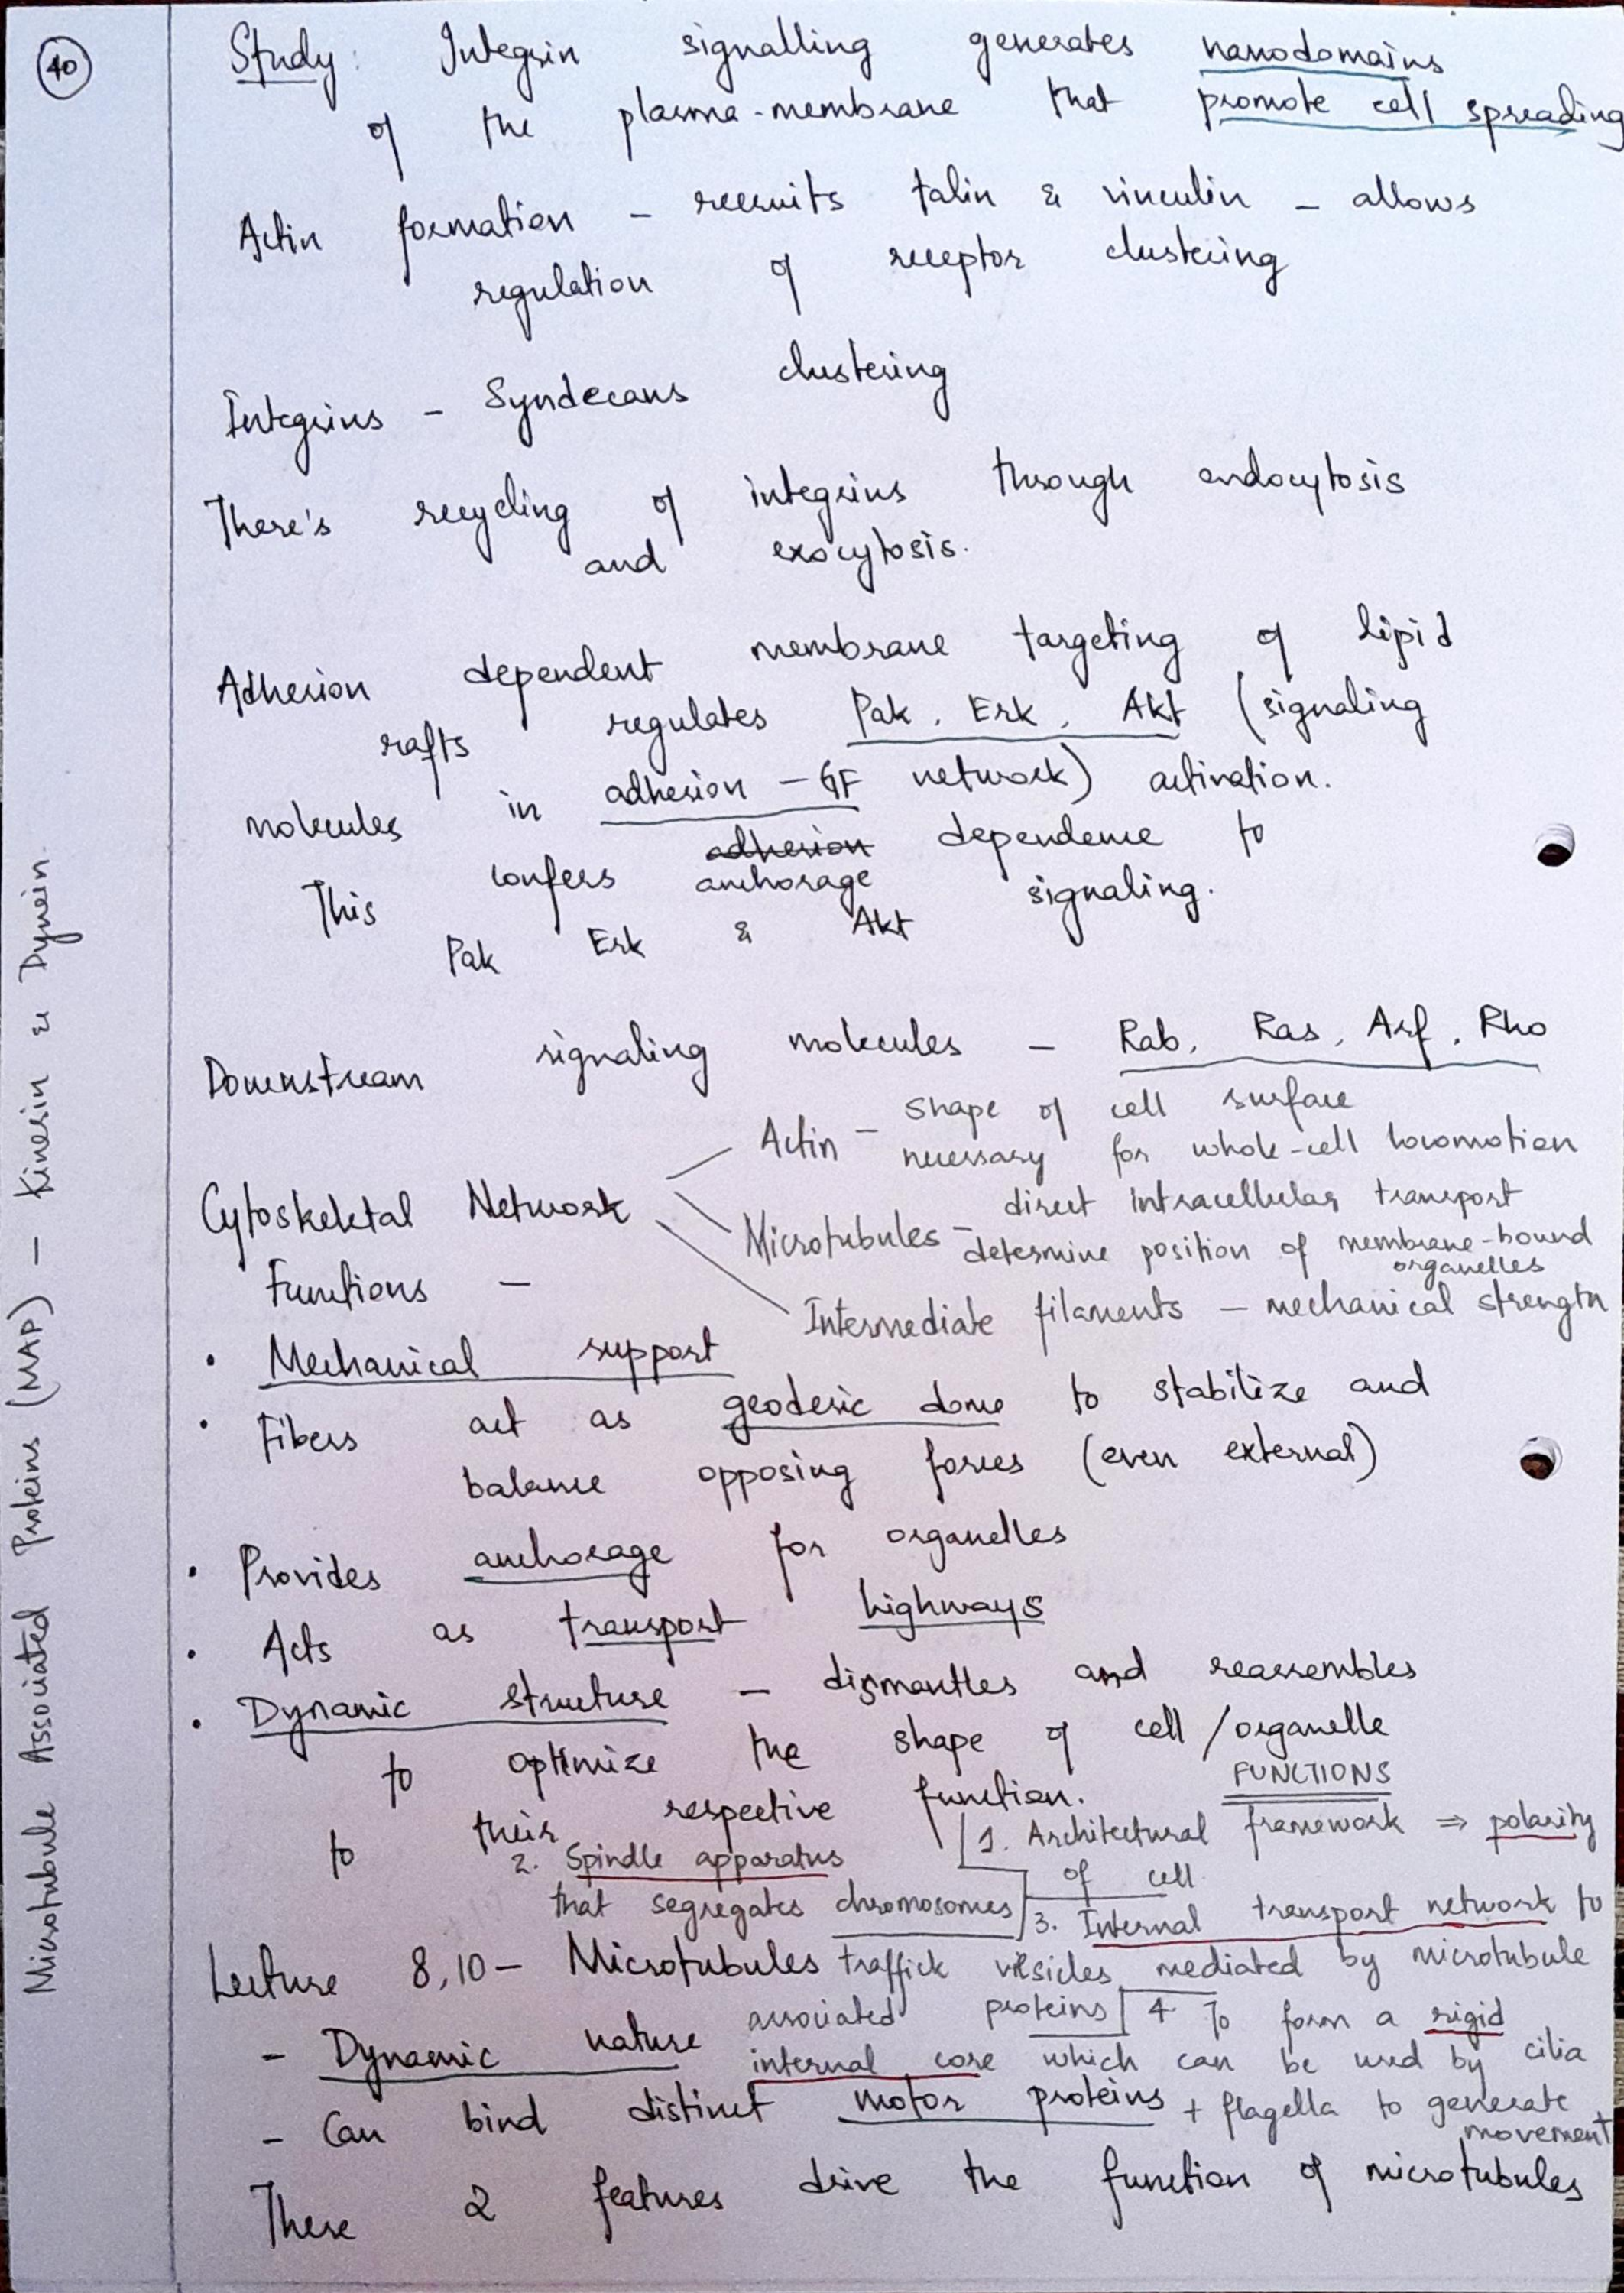 40
Study: Integrin signalling generates nanodomains
of the plasma-membrane that promote cell spreading
Actin formation - recruits talin & vinculin - allows
regulation of receptor clustering
Integrins - Syndecans clustering
There's recycling of integrins through endocytosis
and exocytosis.
Adhesion dependent membrane targeting of lipid
rafts regulates Pak, Erk, Akt (signaling
molecules in adhesion - GF network) activation.
This confers adhesion anchorage dependence to
Pak Erk & Akt signaling.
Downstream signaling molecules - Rab, Ras, Arf, Rho
Cytoskeletal Network
Actin - shape of cell surface
necessary for whole-cell locomotion
Microtubules - direct intracellular transport
determine position of membrane-bound
organelles
Intermediate filaments - mechanical strength
Functions -
• Mechanical support
• Fibers act as geodesic dome to stabilize and
balance opposing forces (even external)
• Provides anchorage for organelles
• Acts as transport highways
• Dynamic structure - dismantles and reassembles
to optimize the shape of cell/organelle
to their respective function.
FUNCTIONS
1. Architectural framework ⇒ polarity
of cell
2. Spindle apparatus
that segregates chromosomes
3. Internal transport network to
traffick vesicles mediated by microtubule
associated proteins
4. To form a rigid
internal core which can be used by cilia
+ flagella to generate
movement
Lecture 8,10 - Microtubules
- Dynamic nature
- Can bind distinct motor proteins
These 2 features drive the function of microtubules
Microtubule Associated Proteins (MAP) - Kinesin & Dynein